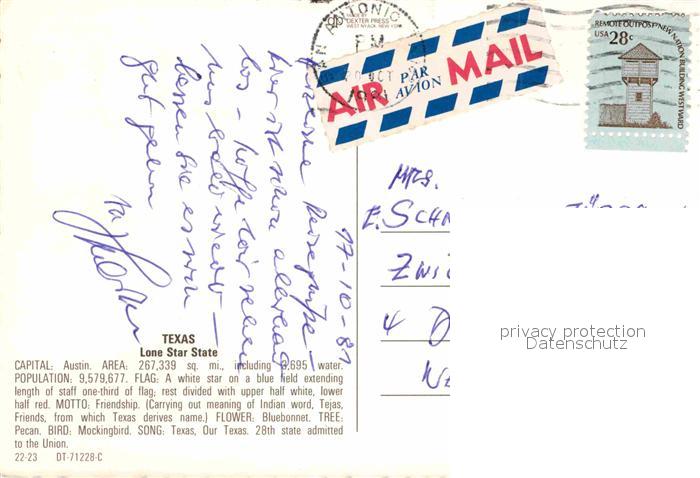 MADE BY
DEXTER PRESS
WEST NYACK, NEW YORK
SAN ANTONIO
PM
OCT
1981
AIR MAIL
PAR AVION
REMOTE OUTPOST, NEW NATION BUILDING WESTWARD
USA 28c
17-10-81
Herzliche Reisegrüße –
hier ist schon allerhand
los – hoffe wir sehen
uns bald wieder –
lassen Sie es sich
gut gehen
MRS.
E. SCH
ZWI
4 D
TEXAS
Lone Star State
CAPITAL: Austin. AREA: 267,339 sq. mi., including 3,695 water.
POPULATION: 9,579,677. FLAG: A white star on a blue field extending
length of staff one-third of flag; rest divided with upper half white, lower
half red. MOTTO: Friendship. (Carrying out meaning of Indian word, Tejas,
Friends, from which Texas derives name.) FLOWER: Bluebonnet. TREE:
Pecan. BIRD: Mockingbird. SONG: Texas, Our Texas. 28th state admitted
to the Union.
22-23 DT-71228-C
privacy protection
Datenschutz